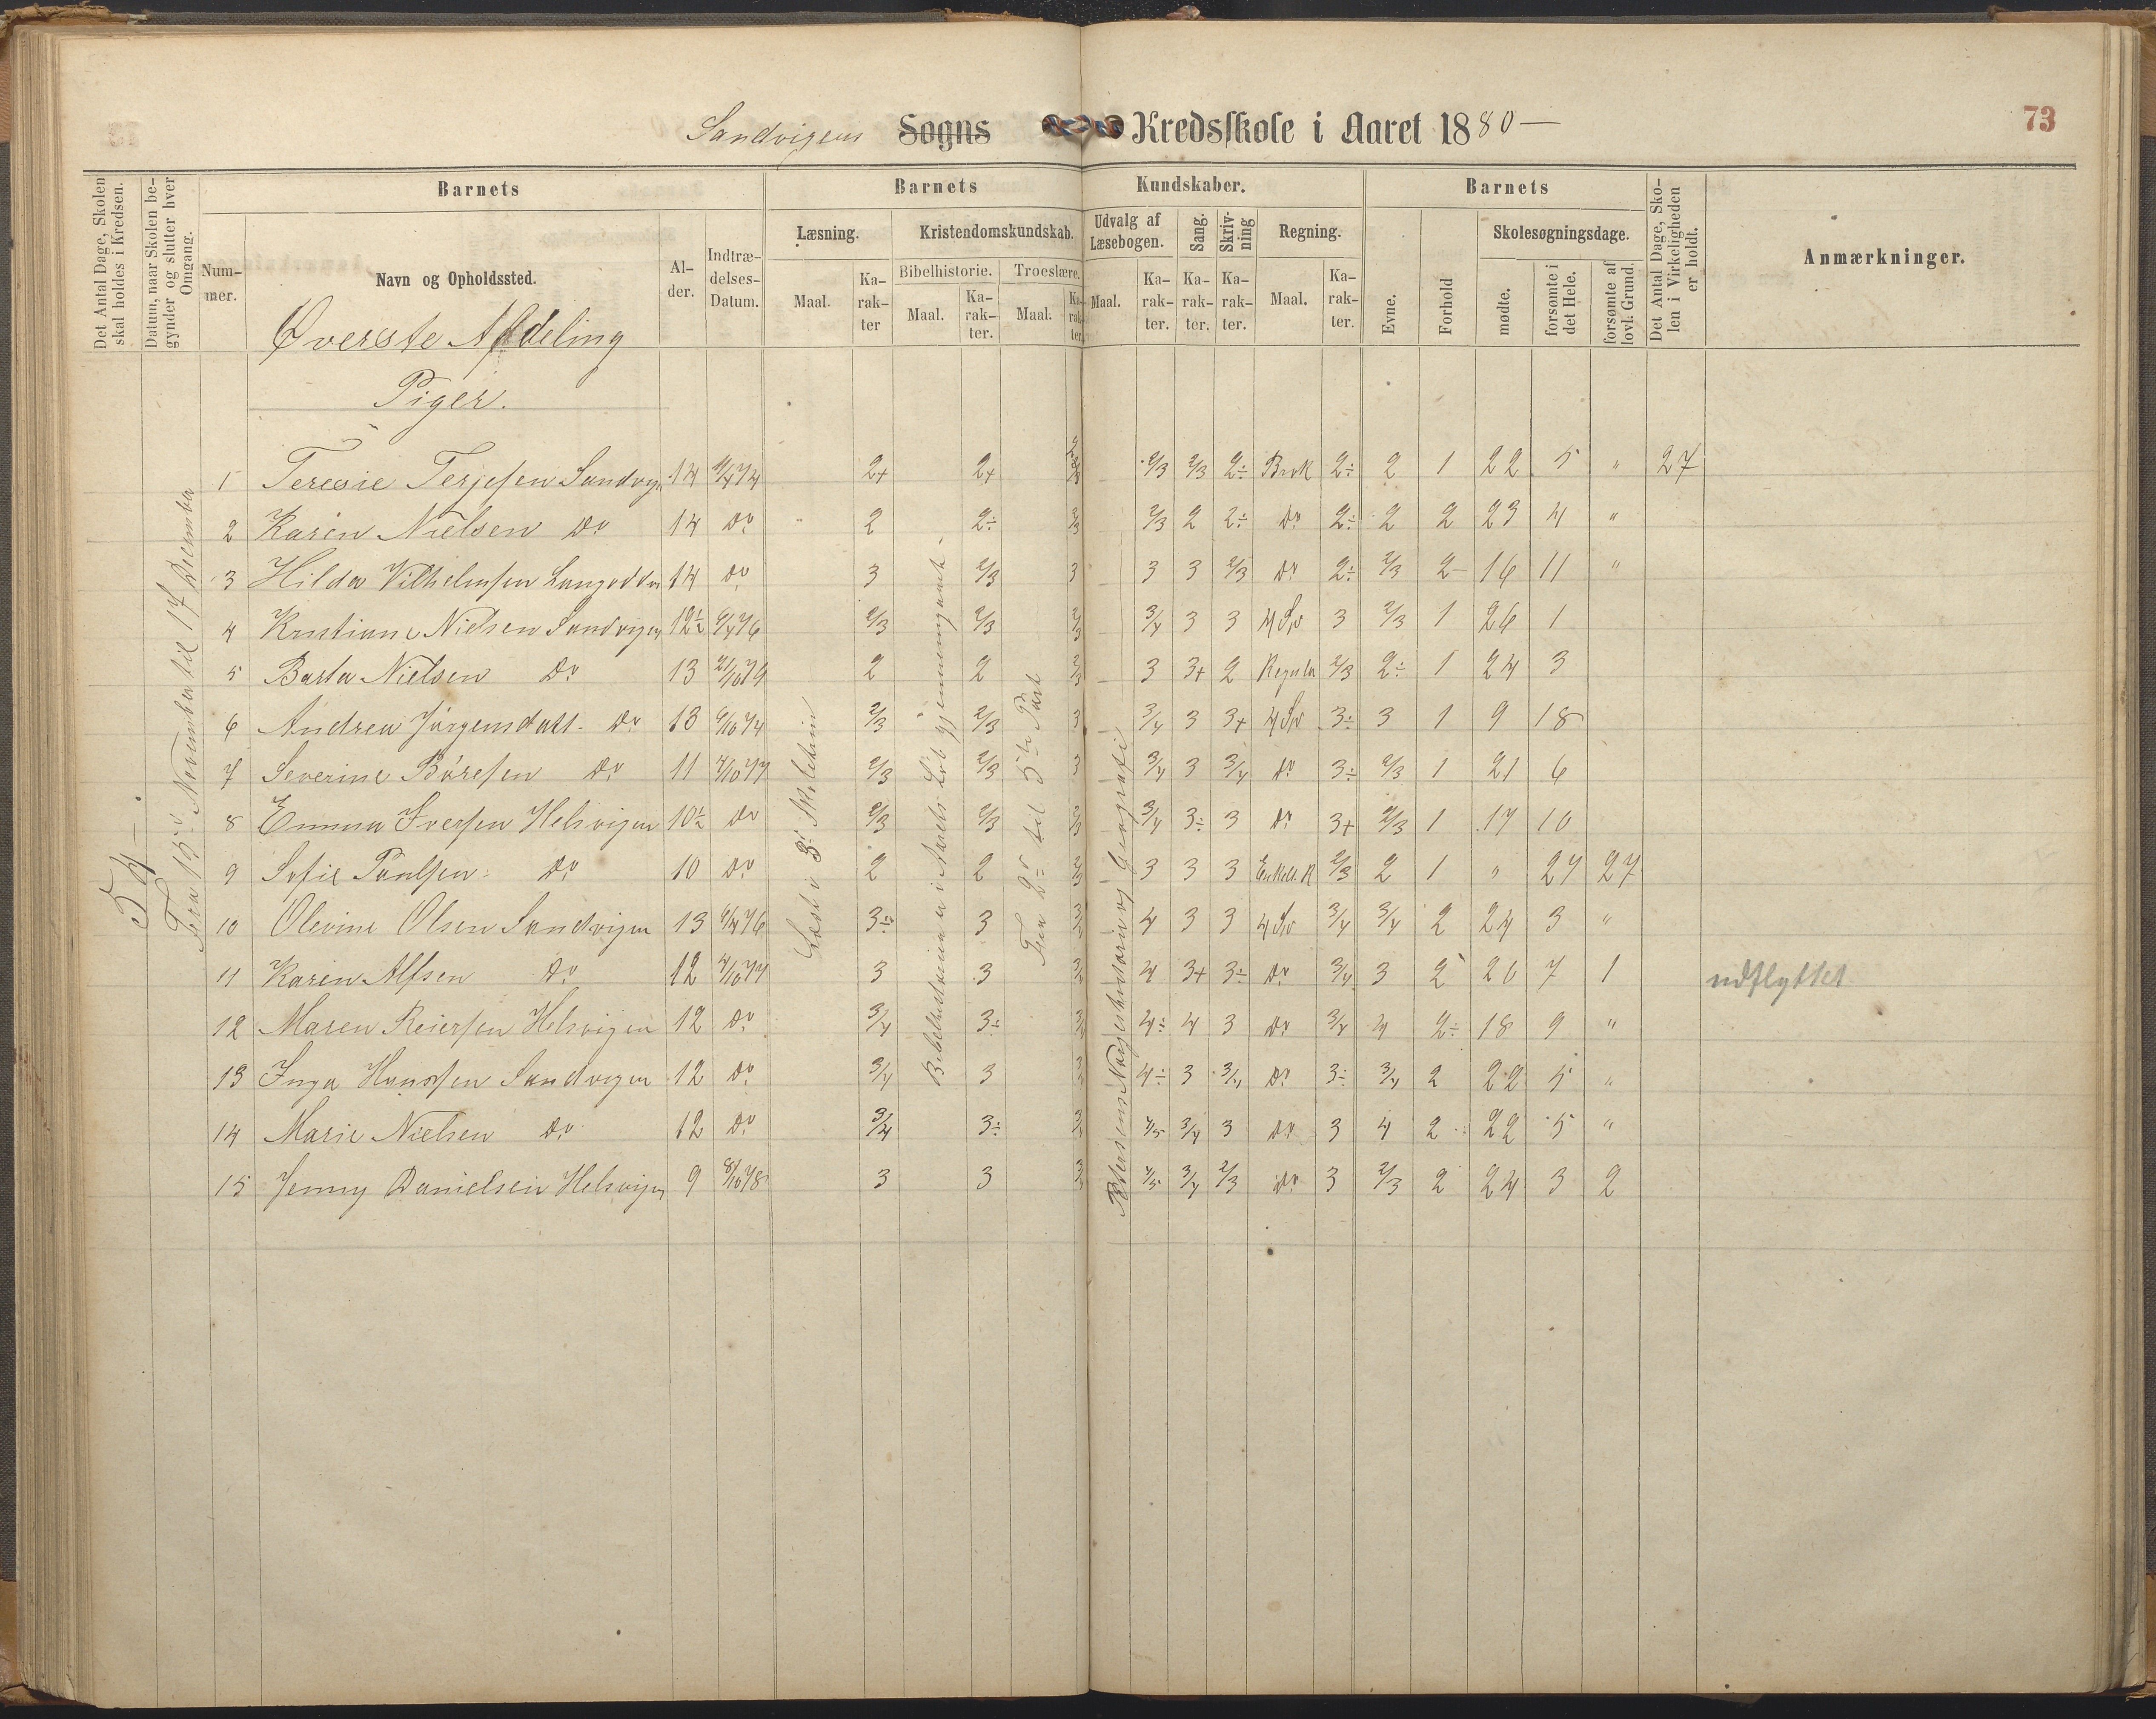 73
Sandvigens Sogns Kredsskole i Aaret 1880 —
Det Antal Dage, Skolen skal holdes i Kredsen.
Datum, naar Skolen begynder og slutter hver Omgang.
Barnets
Barnets
Kundskaber.
Barnets
Det Antal Dage, Skolen i Virkeligheden er holdt.
Anmærkninger.
Nummer.
Navn og Opholdssted.
Alder.
Indtrædelses-Datum.
Læsning.
Kristendomskundskab.
Udvalg af Læsebogen.
Sang.
Skrivning
Regning.
Evne.
Forhold
Skolesøgningsdage.
Bibelhistorie.
Troeslære.
Maal. Karakter Maal. Karakter. Maal. Karakter. Maal. Karakter. Karakter. Karakter. Maal. Karakter.
mødte. forsømte i det Hele. forsømte af lovl. Grund.
Øverste Afdeling
Piger.
54 —
Fra 15de November til 17 December
Læst i 3d Skoletrin
Bibelhistorien er i Aarets Løb gjennemgaaet.
Fra 2den til 5te Part
Norgeshistorie og Geografi
1 Teresie Terjesen Sandvigen 14 2+ 2+ 2/3 2/3 2÷ Brøk 2÷ 2 1 22 5 " 27
2 Karen Nielsen Do 14 Do 2 2÷ 2/3 2/3 2 2÷ Do 2÷ 2 2 23 4 "
3 Hilda Vilhelmsen 14 Do 3 2/3 3 3 3 2/3 Do 2÷ 2/3 2 16 11 "
4 Kristiane Nielsen Sandvigen 12½ 2/3 2/3 2/3 3/4 3 3 4 Sp 3 2/3 1 26 1
5 Berta Nielsen Do 13 21/10 79 2 2 2/3 3 3+ 2 Regula 2/3 2÷ 1 24 3
6 Andrea Jørgensdatt. Do 13 2/3 2/3 3 3/4 3 3+ 4 Sp 3÷ 3 1 9 18
7 Severine Børesen Do 11 4/10 77 2/3 2/3 3 3/4 3 3/4 Do 3÷ 2/3 1 21 6
8 Emma Iversen Helsvigen 10½ Do 2/3 2/3 2/3 3/4 3÷ 3 Do 3+ 2/3 1 17 10
9 Sofie Paulsen Do 10 Do 2 2 2/3 3 3 3 Enkelt. R 2/3 2 1 " 27 27
10 Olevine Olsen Sandvigen 13 3÷ 3 4 3 3 4 Sp 3/4 3/4 2 24 3 "
11 Karen Alfsen Do 12 4/10 77 3 3 4 3+ 3÷ Do 3/4 3 2 20 7 1 udflyttet
12 Maren Reiersen Helsvigen 12 Do 3/4 3÷ 4÷ 4 3 Do 3/4 4 2÷ 18 9 "
13 Inga Hanssen Sandvigen 12 Do 3/4 3 4÷ 3 3/4 Do 3÷ 3/4 2 22 5 "
14 Marie Nielsen Do 12 Do 3/4 3÷ 4/5 3/4 3 Do 3 4 2 22 5 "
15 Jenny Danielsen Helsvigen 9 8/10 78 3 3 4/5 3/4 2/3 Do 3 2/3 2 24 3 2